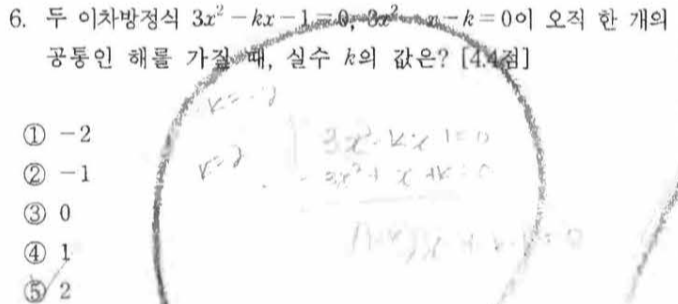 6. 두 이차방정식 3x² - kx - 1 = 0, 3x² - x - k = 0이 오직 한 개의
공통인 해를 가질 때, 실수 k의 값은? [4.4점]
k=-2
① -2
3x² - kx 1 = 0
k=2
② -1
- 3x² + x + k = 0
③ 0
④ 1
⑤ 2